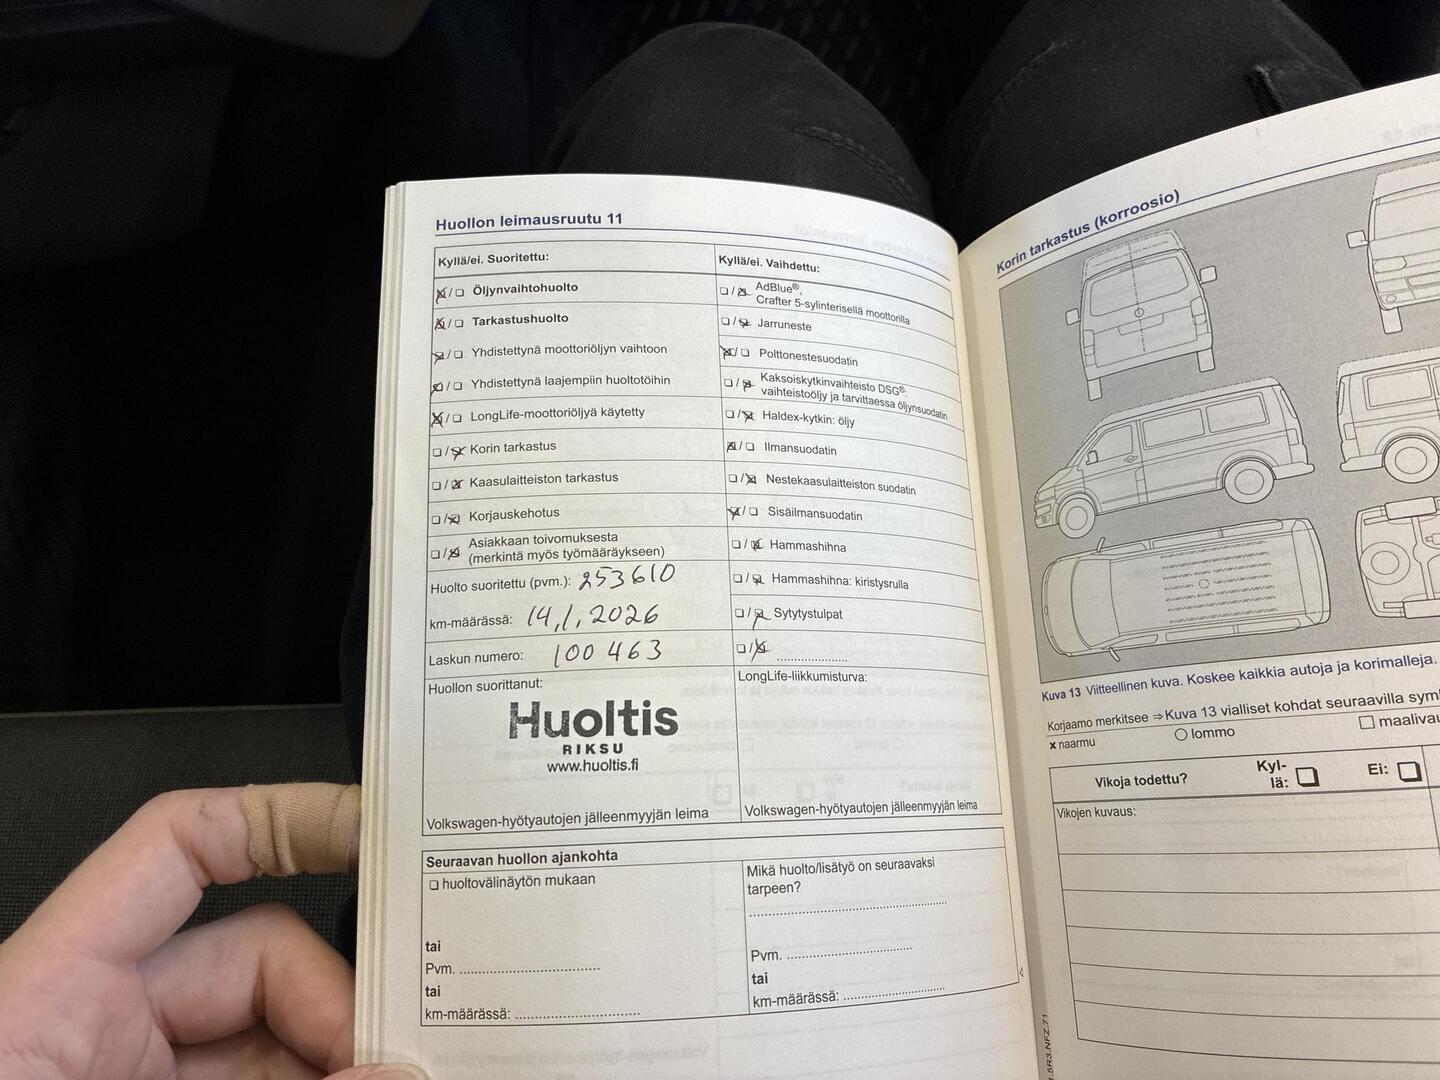 Huollon leimausruutu 11
Kyllä/ei. Suoritettu:
☒/☐ Öljynvaihtohuolto
☒/☐ Tarkastushuolto
☒/☐ Yhdistettynä moottoriöljyn vaihtoon
☒/☐ Yhdistettynä laajempiin huoltotöihin
☒/☐ LongLife-moottoriöljyä käytetty
☐/☒ Korin tarkastus
☐/☒ Kaasulaitteiston tarkastus
☐/☒ Korjauskehotus
☐/☒ Asiakkaan toivomuksesta
(merkintä myös työmääräykseen)
Huolto suoritettu (pvm.): 253610
km-määrässä: 14.1.2026
Laskun numero: 100 463
Huollon suorittanut:
Huoltis
RIKSU
www.huoltis.fi
Volkswagen-hyötyautojen jälleenmyyjän leima
Kyllä/ei. Vaihdettu:
☐/☒ AdBlue®,
Crafter 5-sylinterisellä moottorilla
☐/☒ Jarruneste
☒/☐ Polttonestesuodatin
☐/☒ Kaksoiskytkinvaihteisto DSG®:
vaihteistoöljy ja tarvittaessa öljynsuodatin
☐/☒ Haldex-kytkin: öljy
☒/☐ Ilmansuodatin
☐/☒ Nestekaasulaitteiston suodatin
☒/☐ Sisäilmansuodatin
☐/☒ Hammashihna
☐/☒ Hammashihna: kiristysrulla
☐/☒ Sytytystulpat
☐/☒ ......................
LongLife-liikkumisturva:
Volkswagen-hyötyautojen jälleenmyyjän leima
Seuraavan huollon ajankohta
☐ huoltovälinäytön mukaan
tai
Pvm. ......................................
tai
km-määrässä: ..................................
Mikä huolto/lisätyö on seuraavaksi
tarpeen?
......................................................
Pvm. ..................................
tai
km-määrässä: ............................
Korin tarkastus (korroosio)
Kuva 13 Viitteellinen kuva. Koskee kaikkia autoja ja korimalleja.
Korjaamo merkitsee ⇒ Kuva 13 vialliset kohdat seuraavilla
x naarmu
○ lommo
Vikoja todettu?
Kyl-
lä: ☐
Ei: ☐
Vikojen kuvaus: